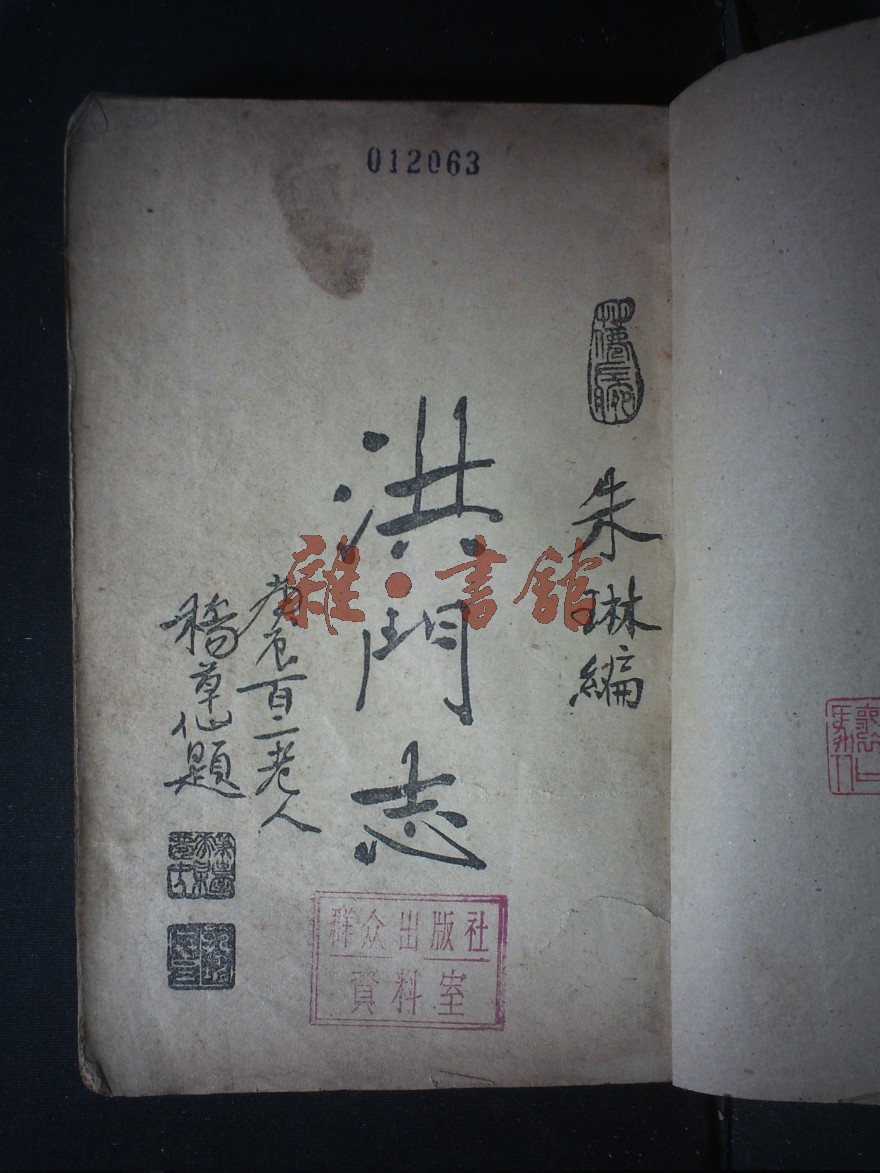 012063
朱琳編
洪門志
庚辰百二老人
杨草仙題
群众出版社
資料室
雜·書館